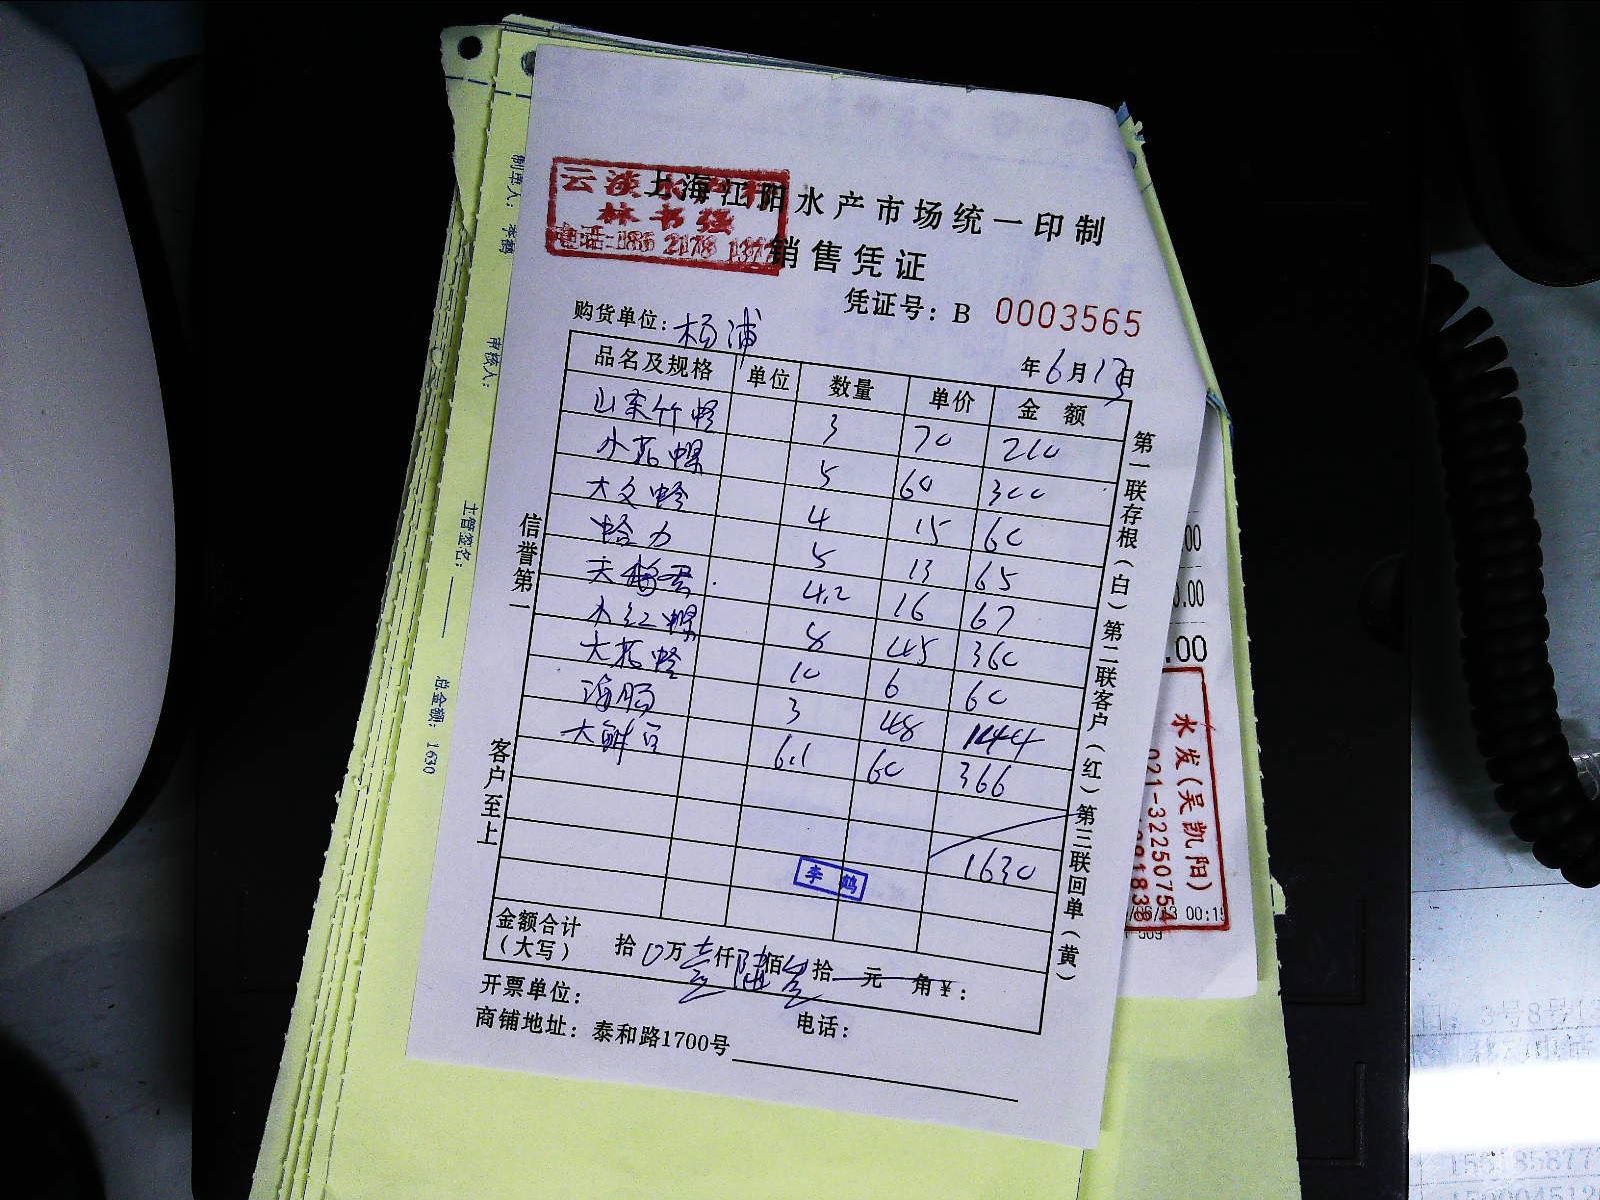 上海江阳水产市场统一印制
林书强
电话:186 2178 137
销售凭证
凭证号: B 0003565
购货单位: 杨浦
年6月13日
品名及规格 单位 数量 单价 金额
山东竹蛏 3 70 210
小花螺 5 60 300
大文蛤 4 15 60
蛤力 5 13 65
4.2 16 67
小红螺 8 45 360
大花蛤 10 6 60
海肠 3 48 144
大鲜豆 6.1 60 366
1630
李鹤
金额合计
(大写) 拾0万壹仟陆佰叁拾元 角¥:
开票单位: 电话:
商铺地址: 泰和路1700号
信誉第一 客户至上
第一联存根(白) 第二联客户(红) 第三联回单(黄)
制单人: 李鹤
审核人:
主管签名:
总金额: 1630
.00
水发(吴凯阳)
021-32250754
00:15